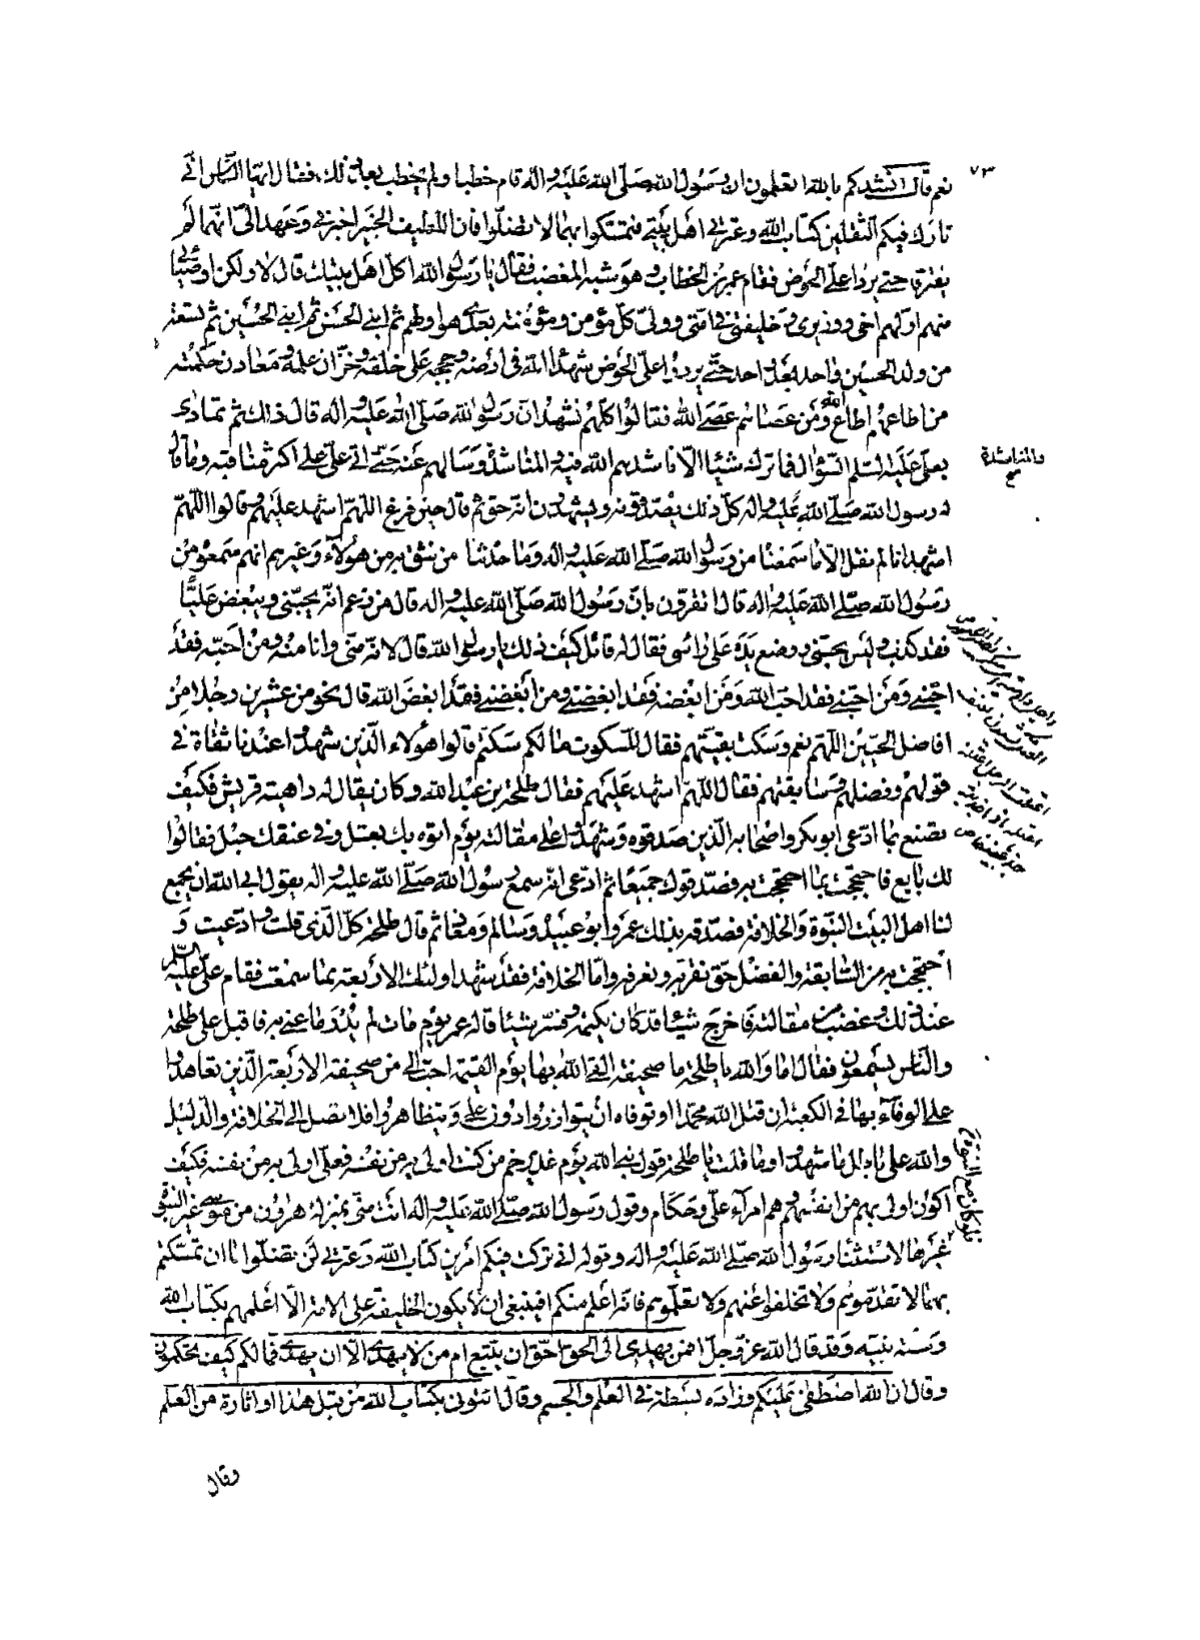 ٧٣
نعم قال انشدكم بالله اتعلمون ان رسول الله صلّى الله عليه واله قام خطيبا ولم يخطب بعد ذلك فقال ايّها النّاس انّى
تارك فيكم الثقلين كتاب الله وعترتى اهل بيتى فتمسّكوا بهما لا تضلّوا فان اللطيف الخبير اخبرنى وعهد الىّ انّهما لن
يفترقا حتى يردا علىّ الحوض فقام عمر بن الخطاب وهو شبه المغضب فقال يا رسول الله اكلّ اهل بيتك قال لا ولكن اوصيائى
منهم اوّلهم اخى ووزيرى وخليفتى فى امّتى وولىّ كلّ مؤمن ومؤمنة بعدى هو اولهم ثم ابنى الحسن ثم ابنى الحسين ثم تسعة
من ولد الحسين واحد بعد واحد حتّى يردوا علىّ الحوض شهداء الله فى ارضه وحججه على خلقه وخزّان علمه ومعادن حكمته
من اطاعهم اطاع الله ومن عصاهم عصى الله فقالوا كلّهم نشهد انّ رسول الله صلّى الله عليه واله قال ذلك ثم تمادى
بعلىّ عليه السّلم السّؤال فما ترك شيئا الّا ناشدهم الله فيه والمناشدة وسالهم عنه حتّى اتى علىّ على اكثر مناقبه وما قال
له رسول الله صلّى الله عليه واله كلّ ذلك يصدّقونه ويشهدون انّه حق ثم قال حين فرغ اللّهمّ اشهد عليهم وقالوا اللّهمّ
اشهد انا لم نقل الّا ما سمعنا من رسول الله صلّى الله عليه واله وما حدّثنا من نثق به من هؤلاء وغيرهم انهم سمعوه من
رسول الله صلّى الله عليه واله قال اتقرّون بانّ رسول الله صلّى الله عليه واله قال من زعم انّه يحبّنى ويبغض عليّا
فقد كذب وليس يحبّنى ووضع يده على راسى فقال له قائل كيف ذلك يا رسول الله قال لانّه منّى وانا منه ومن احبّه فقد
احبّنى ومن احبّنى فقد احبّ الله ومن ابغضه فقد ابغضنى ومن ابغضنى فقد ابغض الله قال نحو من عشرين رجلا من
افاضل الحيّين اللّهمّ نعم وسكت بقيّتهم فقال للسكوت ما لكم سكتم قالوا هؤلاء الّذين شهدوا عندنا ثقاة فى
قولهم وفضلهم وسابقتهم فقال اللّهمّ اشهد عليهم فقال طلحة بن عبد الله وكان يقال له داهية قريش فكيف
تصنع بما ادّعى ابو بكر واصحابه الّذين صدقوه وشهدوا على مقالته يوم اتوه بك بعتل وفى عنقك حبل فقالوا
لك بايع فاحججت بما احججت به فصدّقوك جميعا ثم ادّعى انّه سمع رسول الله صلّى الله عليه واله يقول ابى الله ان يجمع
لنا اهل البيت النبّوة والخلافة فصدّقه بذلك عمر وابو عبيدة وسالم ومعاذ ثم قال طلحة كلّ الّذى قلت وادّعيت و
احججت به من السّابقة والفضل حق نقرّ به ونعرفه وامّا الخلافة فقد شهد اولئك الاربعة بما سمعت فقام علىّ عليه السّلم
عند ذلك وغضب من مقالته فاخرج شيئا قد كان يكتمه وفسّر شيئا قاله عمر يوم مات لم يدر ما عنى به فاقبل على طلحة
والنّاس يسمعون فقال اما والله يا طلحة ما صحيفة القى الله بها يوم القيمة احبّ الىّ من صحيفة الاربعة الّذين تعاهدوا
على الوفاء بها فى الكعبة ان قتل الله محمّدا او توفاه ان يتوازروا دون علىّ ويتظاهروا فلا تصل الىّ الخلافة والدّليل
والله على باطل ما شهدوا وما قلت يا طلحة قول نبى الله يوم غدير خم من كنت اولى به من نفسه فعلىّ اولى به من نفسه فكيف
اكون اولى بهم من انفسهم وهم امراء علىّ وحكام وقول رسول الله صلّى الله عليه واله انت منّى بمنزلة هرون من موسى غير النبّوة
فلو كان مع النبوّة
غيرها لاستثناه رسول الله صلّى الله عليه واله وقوله انى تركت فيكم امرين كتاب الله وعترتى لن تضلّوا ما ان تمسّكتم
بهما لا تقدّموهم ولا تخلفوا عنهم ولا تعلّموهم فانّهم اعلم منكم افينبغى ان لا يكون الخليفة على الامة الّا اعلمهم بكتاب الله
وسنّة نبيّه وقد قال الله عزّ وجلّ افمن يهدى الى الحق احقّ ان يتّبع ام من لا يهدى الّا ان يهدى فما لكم كيف تحكمون
وقال ان الله اصطفى عليكم وزاده بسطة فى العلم والجسم وقال ائتونى بكتاب الله من قبل هذا او اثارة من العلم
وقال